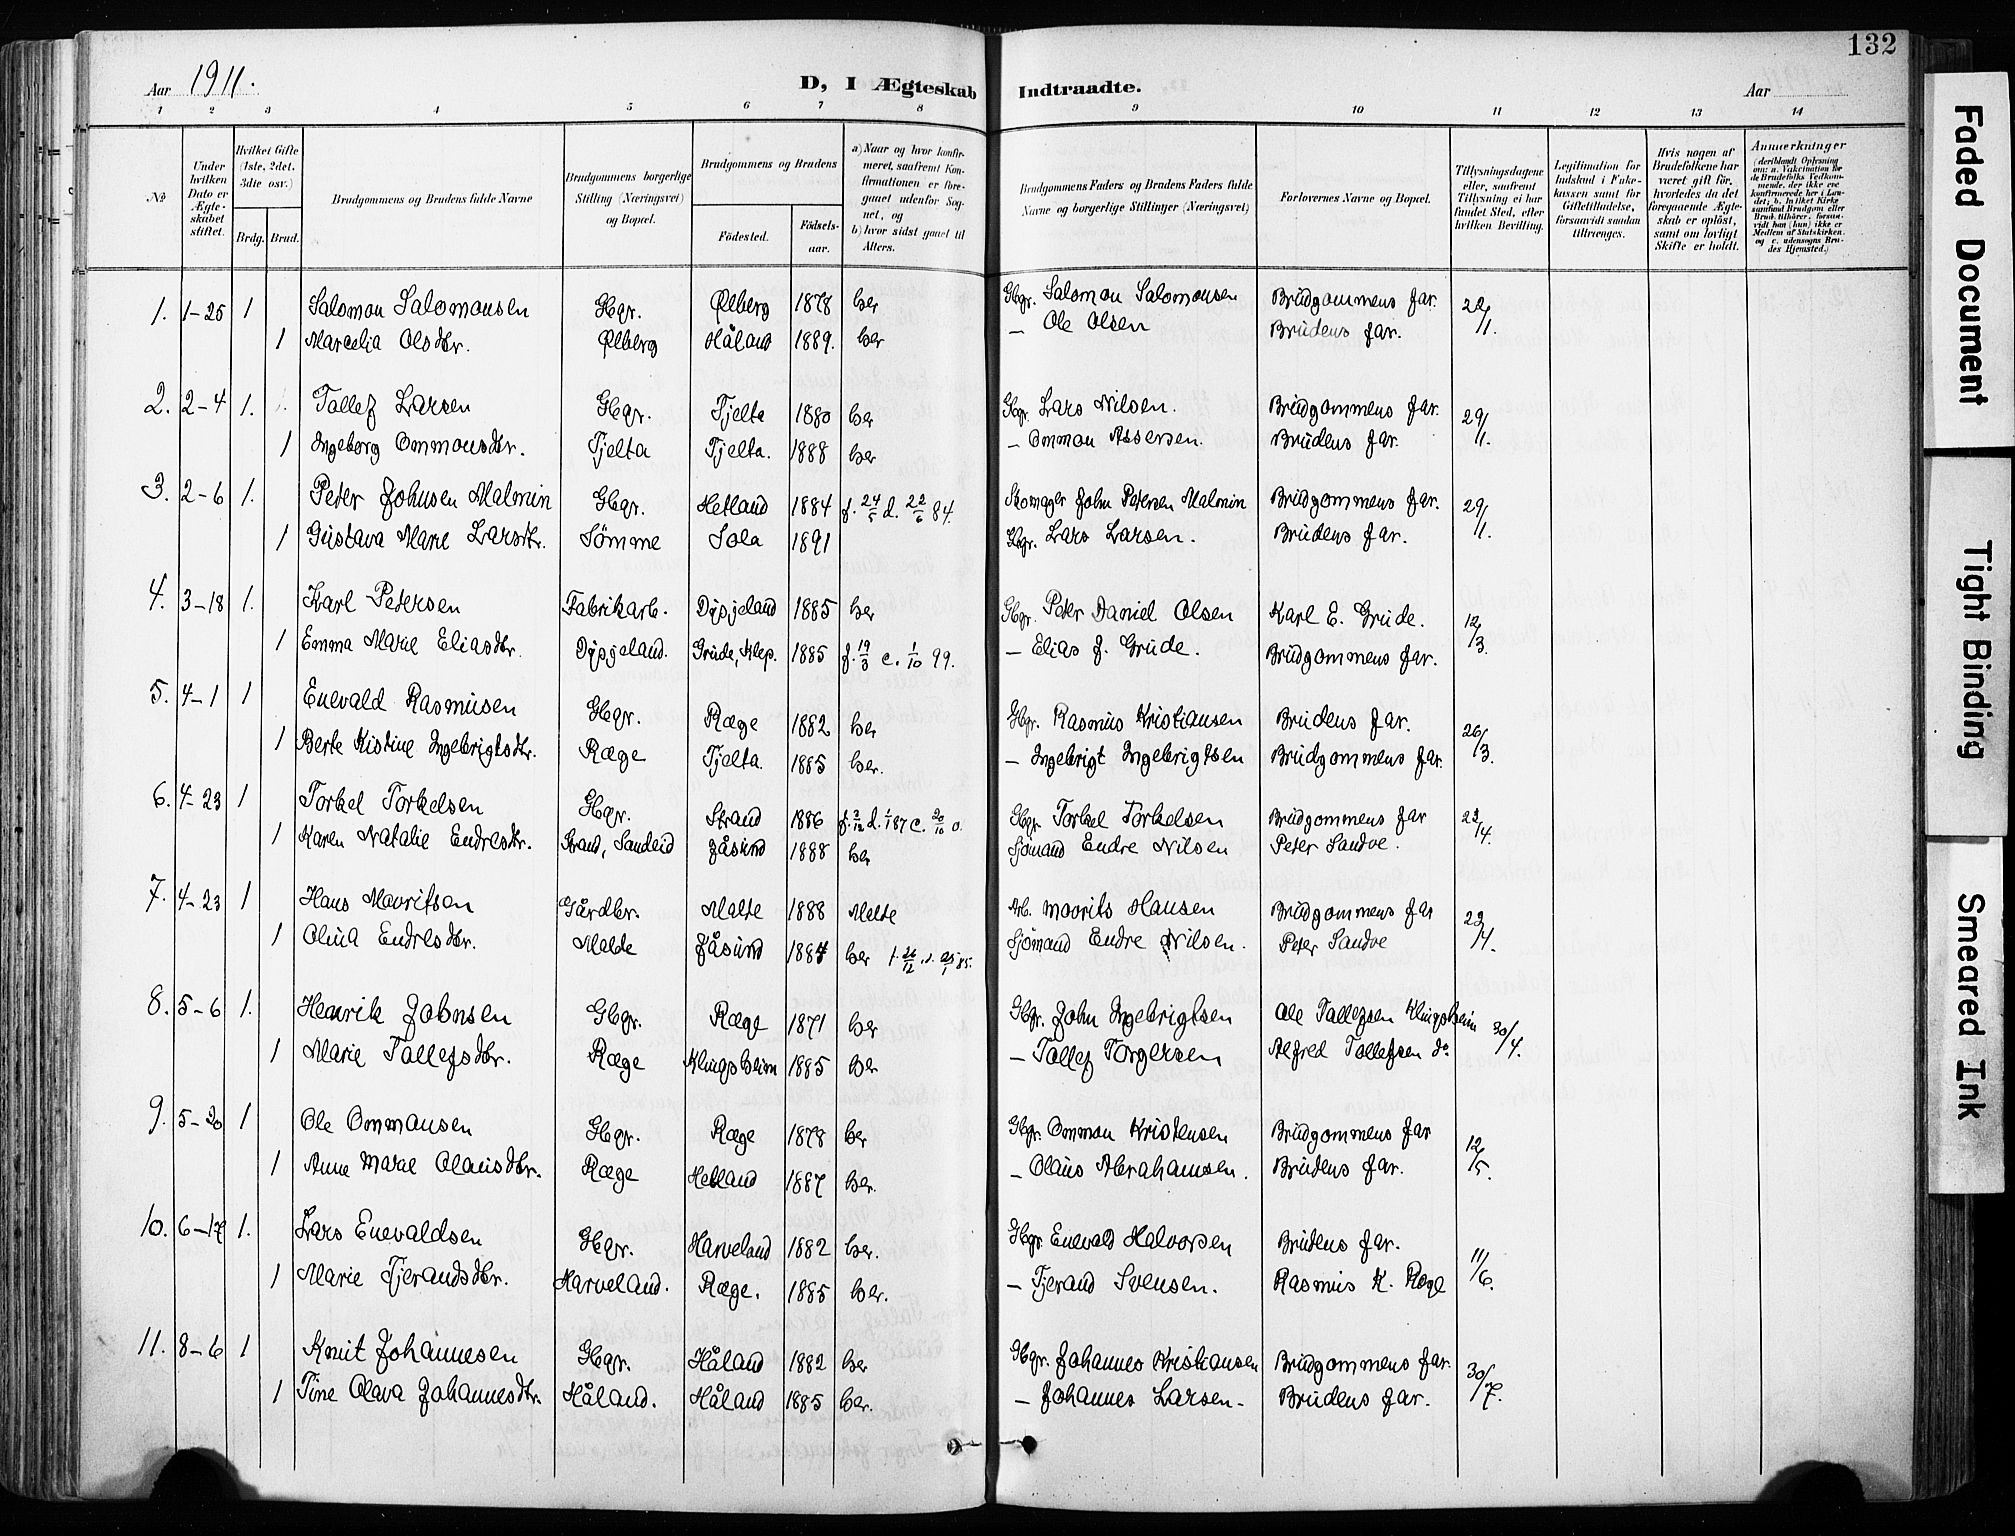 132
Aar 1911.
D, I Ægteskab Indtraadte.
Aar
1 2 3 4 5 6 7 8 9 10 11 12 13 14
No
Under hvilken Dato er Ægteskabet stiftet.
Hvilket Gifte (1ste, 2det, 3die osv.)
Brdg. Brud.
Brudgommens og Brudens fulde Navne
Brudgommens borgerlige Stilling (Næringsvei) og Bopæl.
Brudgommens og Brudens
Fødested. Fødselsaar.
a) Naar og hvor konfirmeret, saafremt Konfirmationen er foregaaet udenfor Sognet, og b) hvor sidst gaaet til Alters.
Brudgommens Faders og Brudens Faders fulde Navne og borgerlige Stillinger (Næringsvei)
Forlovernes Navne og Bopæl.
Tillysningsdagene eller, saafremt Tillysning ei har fundet Sted, efter hvilken Bevilling.
Legitimation for Indskud i Enkekassen samt for Giftetilladelse, forsaavidt saadan tiltrænges.
Hvis nogen af Brudefolkene har været gift før, hvorledes da det foregaaende Ægteskab er opløst, samt om lovligt Skifte er holdt.
Anmærkninger
1. 1-25 1 Salomon Salomonsen Gbgr. Ølberg 1878 her Gbgr. Salomon Salomonsen Brudgommens far. 22/1.
1 Marcelia Olsdtr. Ølberg Håland 1889. her – Ole Olsen Brudens far.
2. 2-4 1. Tollef Larsen Gbgr. Tjelta 1880 her Gbgr. Lars Nilsen. Brudgommens far. 29/1.
1 Ingeborg Ommonsdtr. Tjelta Tjelta. 1888 her – Ommon Assersen. Brudens far.
3. 2-6 1. Peter Johnsen Malmin Gbgr. Hetland 1884 f. 24/5 d. 22/6 84. Skomager John Petersen Malmin Brudgommens far. 29/1.
1 Gustava Marie Larsdtr. Sömme Sola 1891 Gbgr. Lars Larsen. Brudens far.
4. 3-18 1. Karl Petersen Fabrikarb. Dysjeland 1885 her Gbgr. Peter Daniel Olsen Karl E. Grude. 12/3.
1 Emma Marie Eliasdtr. Dysjeland. Grude, Klep. 1885 f. 19/3 c. 1/10 99. – Elias J. Grude. Brudgommens far.
5. 4-1 1 Enevald Rasmusen Gbgr. Ræge 1882 her Gbgr. Rasmus Kristiansen Brudens far. 26/3.
1 Berte Kistine Ingebrigtsdtr. Ræge Tjelta. 1885 her. – Ingebrigt Ingebrigtsen Brudgommens far.
6. 4-23 1 Torkel Torkelsen Gbgr. Strand 1886 Gbgr Torkel Torkelsen Brudgommens far 23/4.
1 Karen Natalie Endresdtr. Strand, Sandeid Jåsund 1888 her Sjømand Endre Nilsen Peter Sandve.
7. 4-23 1 Hans Mauritsen Gårdbr. Malte 1888 Malte Arb. Maurits Hansen Brudgommens far 23/4.
1 Olina Endresdtr. Malde Jåsund 1884 her f. 26/12 d. 25/1 85. Sjömand Endre Nilsen. Peter Sandve
8. 5-6 1. Henrik Johnsen Gbgr. Ræge 1871 her Gbgr. John Ingebrigtsen Ole Tallefsen Klingsheim 30/4.
1 Marie Tallefsdtr. Ræge Klingsheim 1885 her – Tollef Torgersen Alfred Tollefsen do
9. 5-20 1 Ole Ommonsen Gbgr. Ræge 1878 her Gbgr. Ommon Kristensen Brudgommens far 12/5.
1 Anne Marie Olausdtr. Ræge Hetland 1887 her. – Olaus Abrahamsen. Brudens far.
10. 6-17 1. Lars Enevaldsen Gbgr. Harveland 1882 her. Gbgr. Enevald Halvorsen Brudens far. 11/6.
1 Marie Tjerandsdtr. Harveland. Ræge. 1885 her. – Tjerand Svensen. Rasmus K. Ræge
11. 8-6 1 Knut Johannesen Gbgr. Håland 1882 her Gbgr. Johannes Kristiansen Brudgommens far. 30/7.
1 Tine Olava Johannesdtr. Håland. Håland 1885 her. – Johannes Larsen. Brudens far.
Faded Document
Tight Binding
Smeared Ink